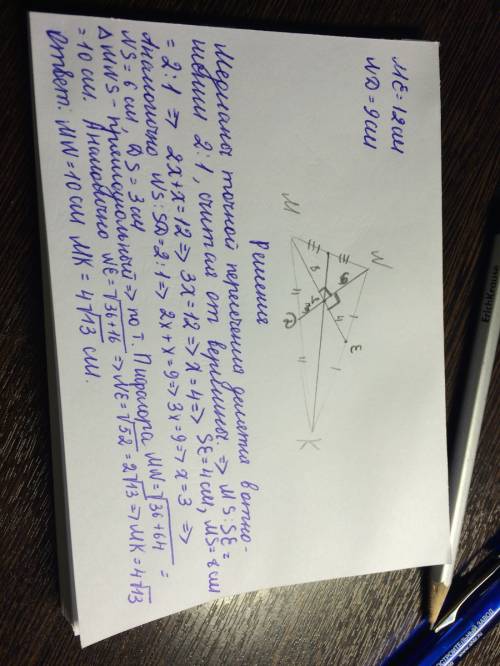 ME = 12 см
ND = 9 см
M
N
8
6
S
3
4
D
E
K
Решение
Медианы точкой пересечения делятся в отно-
шении 2:1, считая от вершины. ⇒ MS:SE =
= 2:1 ⇒ 2x+x=12 ⇒ 3x=12 ⇒ x=4 ⇒ SE=4 см, MS=8 см
Аналогично NS:SD=2:1 ⇒ 2x+x=9 ⇒ 3x=9 ⇒ x=3 ⇒
NS=6 см, DS=3 см
△MNS - прямоугольный ⇒ по т. Пифагора MN=√36+64 =
=10 см. Аналогично NE=√36+16 ⇒ NE=√52=2√13 ⇒ NK=4√13
Ответ: MN=10 см MK=4√13 см.